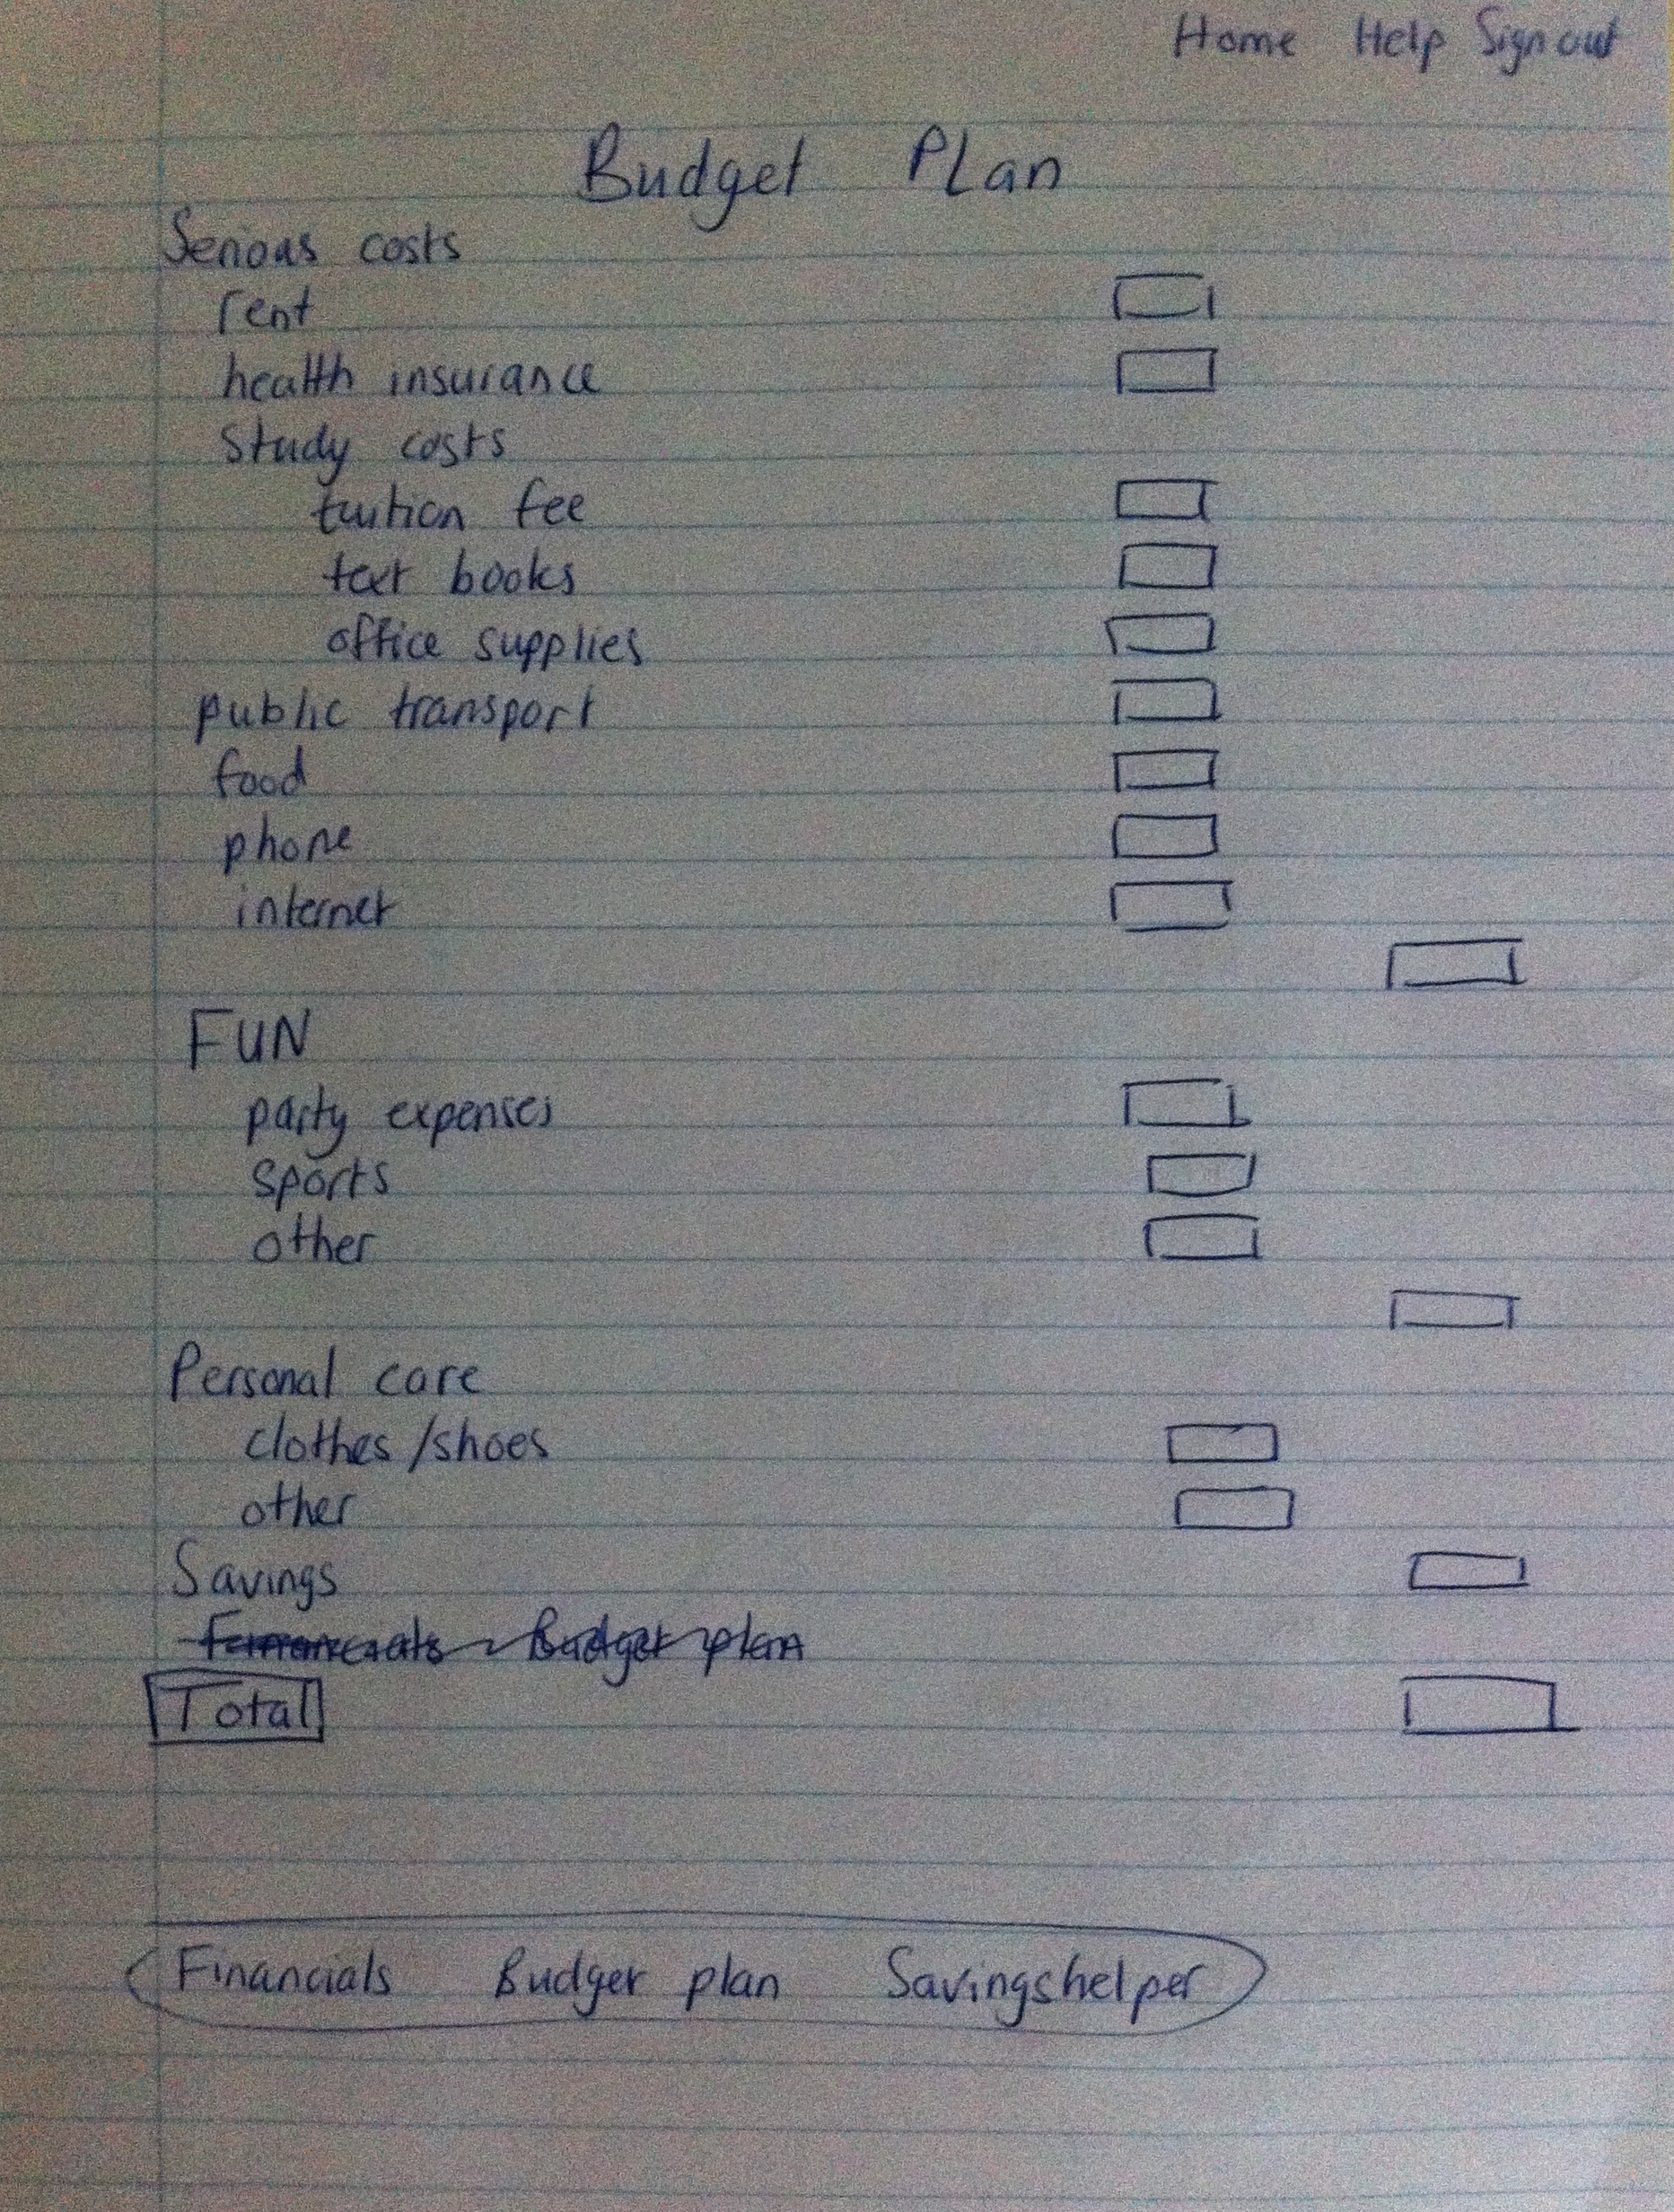 Home Help Sign out
Budget Plan
Serious costs
rent
health insurance
study costs
tuition fee
text books
office supplies
public transport
food
phone
internet
FUN
party expenses
sports
other
Personal care
clothes/shoes
other
Savings
Financials Budget plan
Total
Financials Budget plan Savingshelper